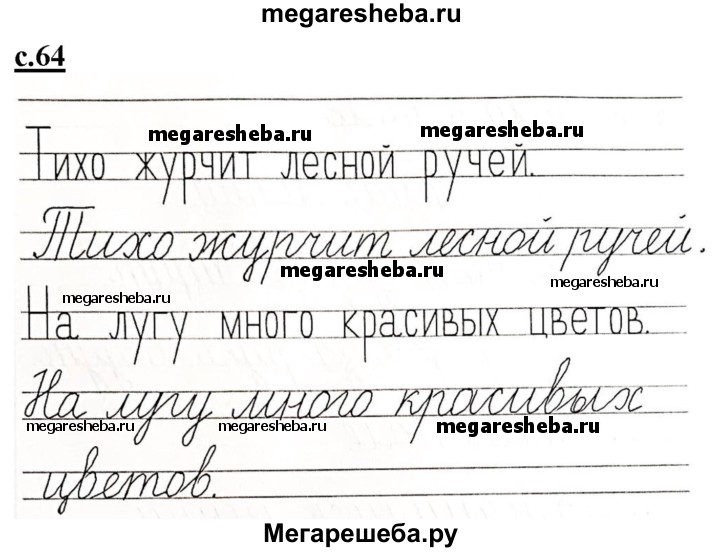 megaresheba.ru
с.64
megaresheba.ru megaresheba.ru
Тихо журчит лесной ручей.
Тихо журчит лесной ручей.
megaresheba.ru
megaresheba.ru megaresheba.ru
На лугу много красивых цветов.
На лугу много красивых
megaresheba.ru megaresheba.ru megaresheba.ru
цветов.
Мегарешеба.ру